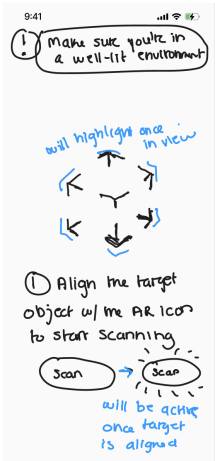 9:41
! Make sure you're in
a well-lit environment
will highlight once
in view
① Align the target
object w/ the AR icon
to start scanning
scan → scan
will be active
once target
is aligned